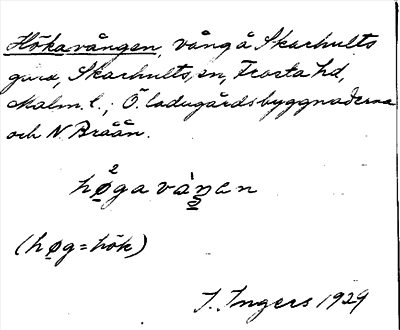 Hökavången, vång å Skarhults
gård, Skarhults, sn, Frosta hd,
Malm. l., Ö. ladugårdsbyggnaderna
och N Bråån.
høga våŋen
(høg = hök)
I. Ingers 1929